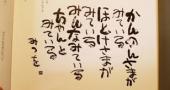 かんのんさまが
みている
ほとけさまが
みている
みんなみている
ちゃんと
みている
みつを